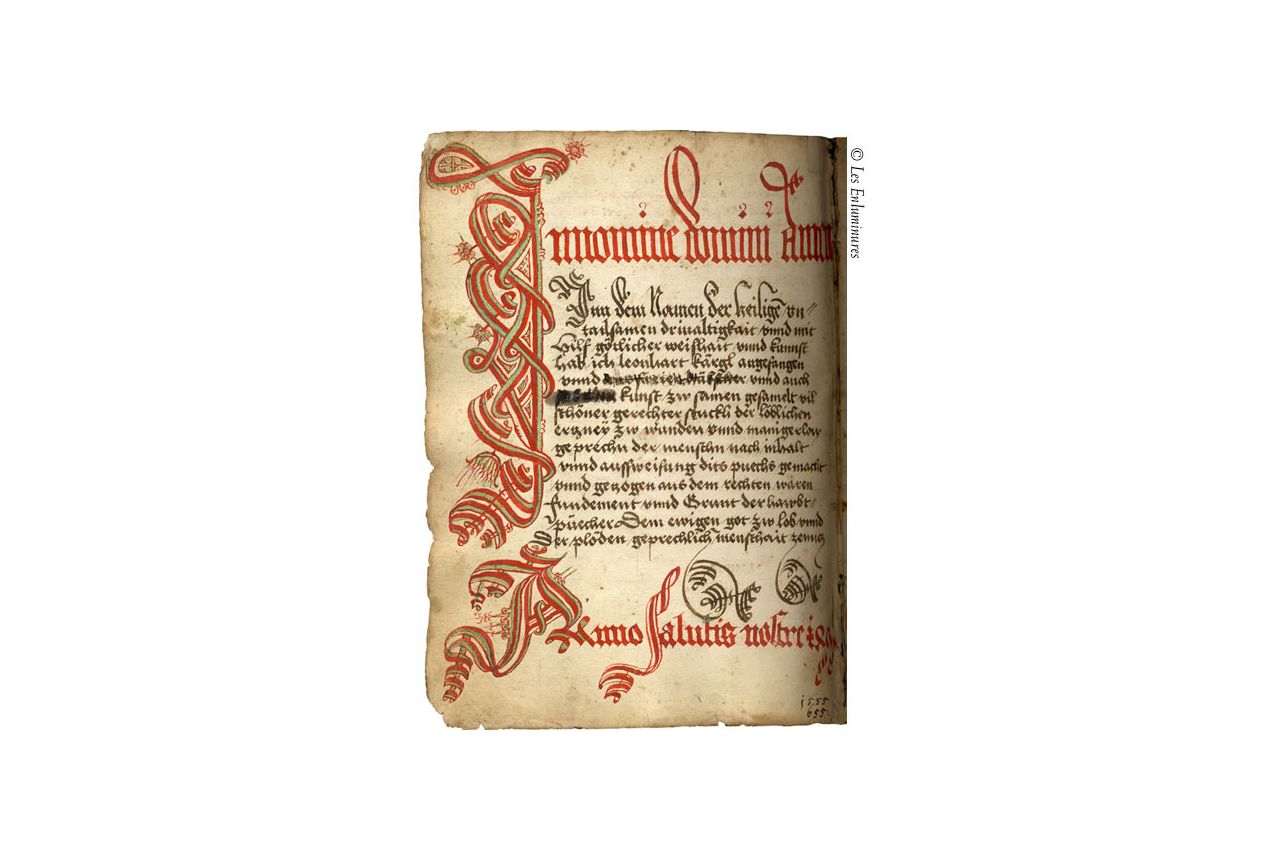 Innomine domini Amen
Inn dem Namen der heiligē vn⸗
tailsamen driualtigkait vnnd mit
Hilf götlicher weishait vnnd kunnst
hab ich leonhart kärgl angefangen
vnnd vnnd auch
kunst zw samen gesamelt vil
schöner gerechter stuckh der löblichen
ertzney zw wunden vnnd manigerlay
geprechn der menschn nach inhalt
vnnd aussweisung dits puechs gemacht
vnnd getzogen aus dem rechten waren
fundement vnnd Grunt der hawbt⸗
püecher Dem ewigen got zw lob vnnd
der plöden geprechlich menschait
Anno salutis nostre
1555
655
© Les Enluminures